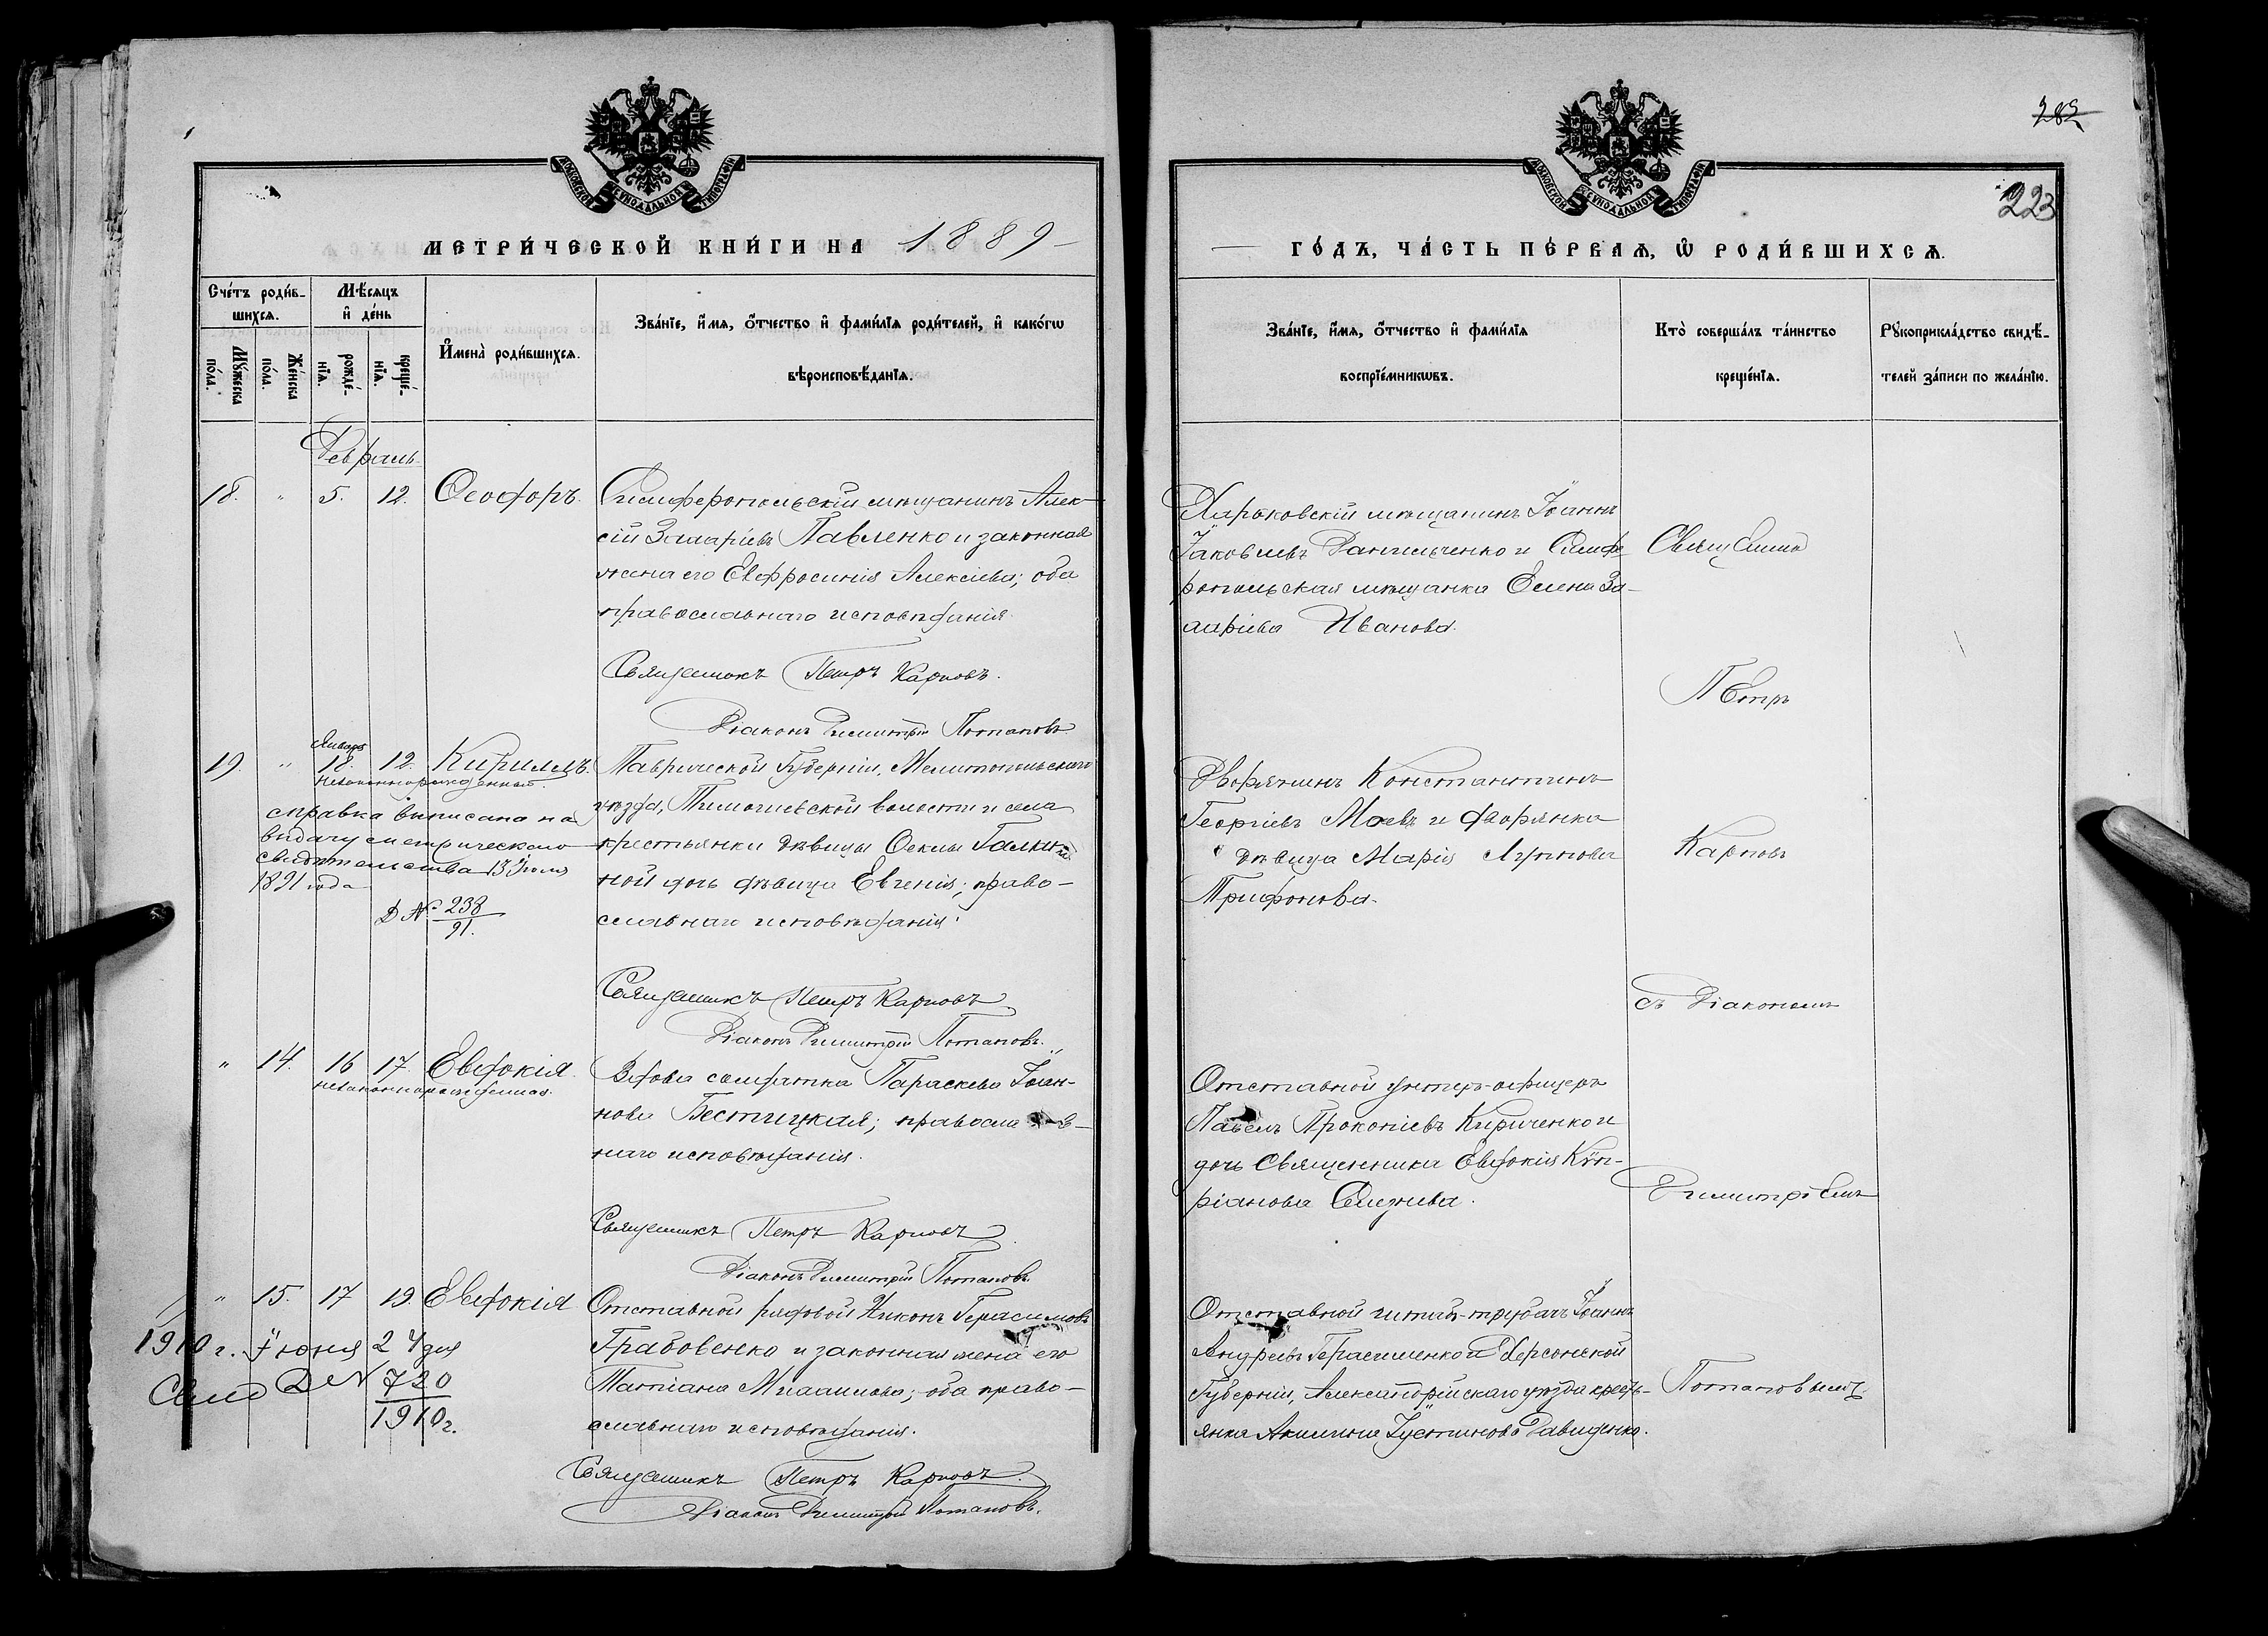 МОСКОВСКОЙ СѴНОДАЛЬНОЙ ТИПОГРАФІИ
МЕТРИ́ЧЕСКОЙ КНИ́ГИ НА 1889
Сче́тъ роди́в-
шихсѧ.
Мѣ́сѧцъ
и҆ де́нь
И҆мена̀ роди́вшихсѧ.
Зва́нїе, и҆́мѧ, ѻ҆́тчество и҆ фами́лїѧ роди́телей, и҆ како́гѡ
вѣроисповѣ́данїѧ.
Мꙋ́жеска
по́ла.
Же́нска
по́ла.
рожде́-
нїѧ.
креще́-
нїѧ.
Февраль
18. " 5. 12. Ѳеодоръ.
Симферопольскій мѣщанинъ Алек-
сій Захаріевъ Павленко и законная
жена его Евфросинія Алексіева; оба
православнаго исповѣданія.
Священникъ Петръ Карповъ.
Діаконъ Димитрій Потаповъ
Январь
19. " 18. 12. Кириллъ.
незаконнорожденный.
Таврической Губерніи, Мелитопольскаго
уѣзда, Тимошевской волости и села
крестьянки дѣвицы Ѳеклы Галки
ной дочь дѣвица Евгенія; право-
славнаго исповѣданія.
справка выписана на
выдачу метрическаго
свидѣтельства 13 Іюля
1891 года
Д № 238
91.
Священникъ Петръ Карповъ
Діаконъ Димитрій Потаповъ.
" 14. 16 17. Евдокія
незаконнорожденная.
Вдова солдатка Параскева Іоан-
нова Бестицкая; православ-
наго исповѣданія.
Священникъ Петръ Карповъ
Діаконъ Димитрій Потаповъ
" 15. 17 19. Евдокія
Отставной рядовой Никонъ Герасимовъ
Грабовенко и законная жена его
Татіана Михаилова; оба право-
славнаго исповѣданія.
1910 г. Іюня 24 дня
Д № 720
1910 г.
Священникъ Петръ Карповъ.
Діаконъ Димитрій Потаповъ.
282
223
МОСКОВСКОЙ СѴНОДАЛЬНОЙ ТИПОГРАФІИ
ГО́ДЪ, ЧА́СТЬ ПЕ́РВАѦ, Ѡ҆ РОДИ́ВШИХСѦ.
Зва́нїе, и҆́мѧ, ѻ҆́тчество и҆ фами́лїѧ
воспрїе́мникѡвъ.
Кто̀ соверша́лъ та́инство
креще́нїѧ.
Рꙋкоприкла́дство свидѣ́-
телей за́писи по жела́нїю.
Харьковскій мѣщанинъ Іоаннъ
Іаковлевъ Данильченко и Симфе
ропольская мѣщанка Елена За-
харіева Иванова.
Священникъ
Петръ
Дворянинъ Константинъ
Георгіевъ Маевъ и дворянка
дѣвица Марія
Трифонова.
Карповъ
съ Діакономъ
Отставной унтеръ-офицеръ
Павелъ Прокопіевъ Кириченко и
дочь Священника Евдокія Кип-
ріанова
Димитріемъ
Отставной штабъ-трубачъ Іоаннъ
Андреевъ Герасименко и Херсонской
Губерніи, Александрійскаго уѣзда кресть-
янка Акилина Іустинова Давиденко.
Потаповымъ.